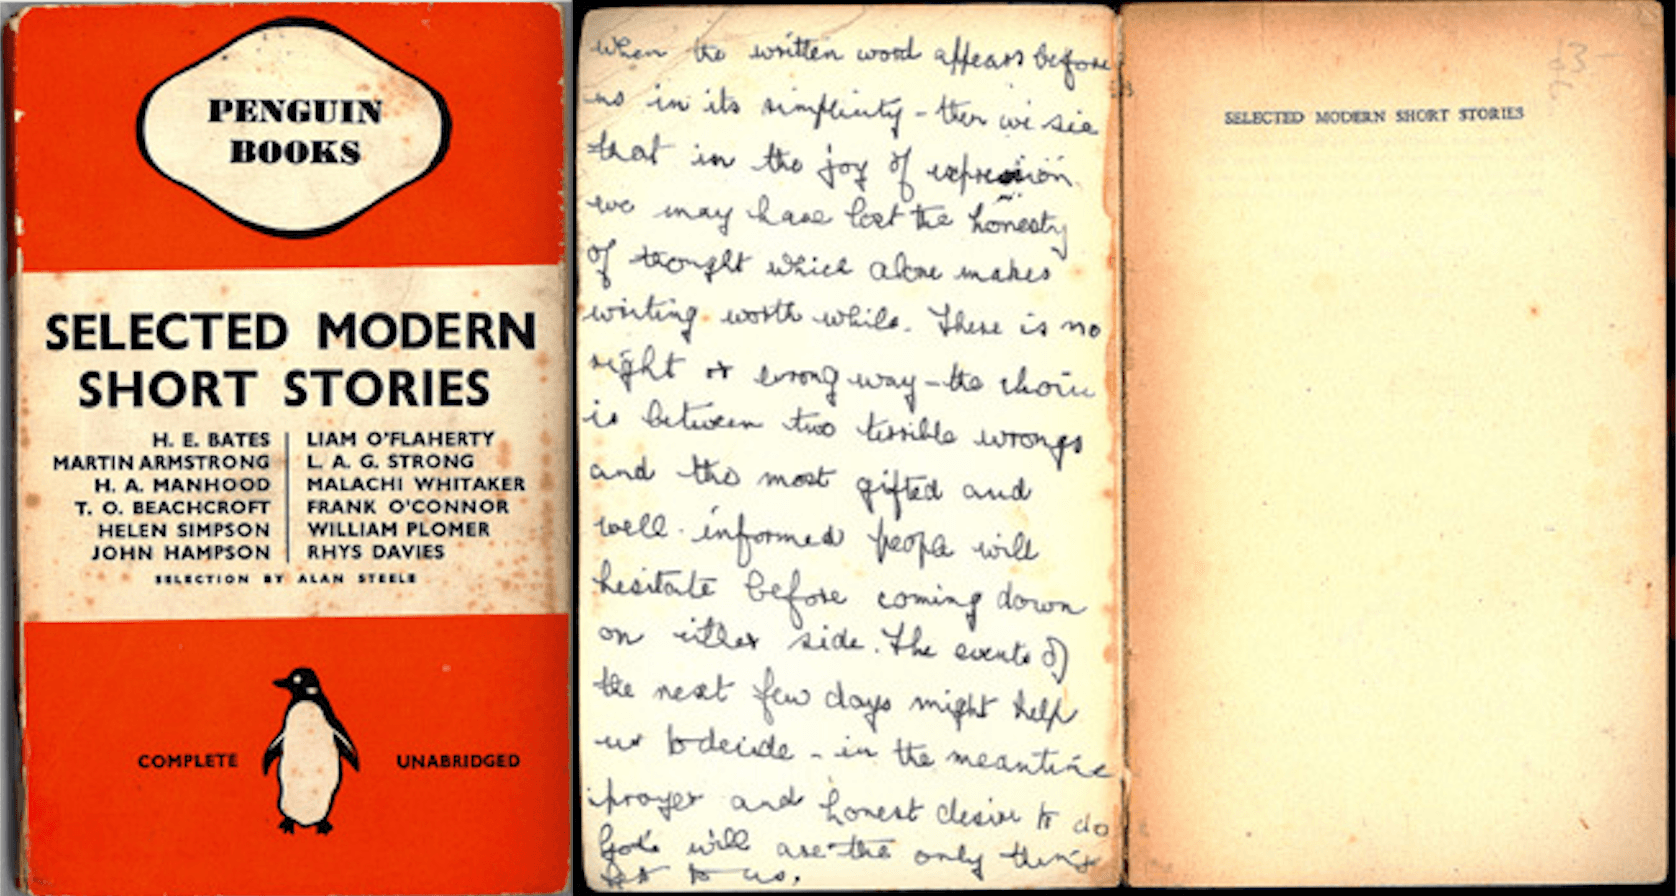 PENGUIN
BOOKS
SELECTED MODERN
SHORT STORIES
H. E. BATES
MARTIN ARMSTRONG
H. A. MANHOOD
T. O. BEACHCROFT
HELEN SIMPSON
JOHN HAMPSON
LIAM O'FLAHERTY
L. A. G. STRONG
MALACHI WHITAKER
FRANK O'CONNOR
WILLIAM PLOMER
RHYS DAVIES
SELECTION BY ALAN STEELE
COMPLETE
UNABRIDGED
When the written word appears before
us in its simplicity - then we see
that in the joy of expression
we may have lost the honesty
of thought which alone makes
writing worth while. There is no
right or wrong way - the choice
is between two terrible wrongs
and the most gifted and
well-informed people will
hesitate before coming down
on either side. The events of
the next few days might help
us to decide - in the meantime
prayer and honest desire to do
God's will are the only things
left to us.
SELECTED MODERN SHORT STORIES